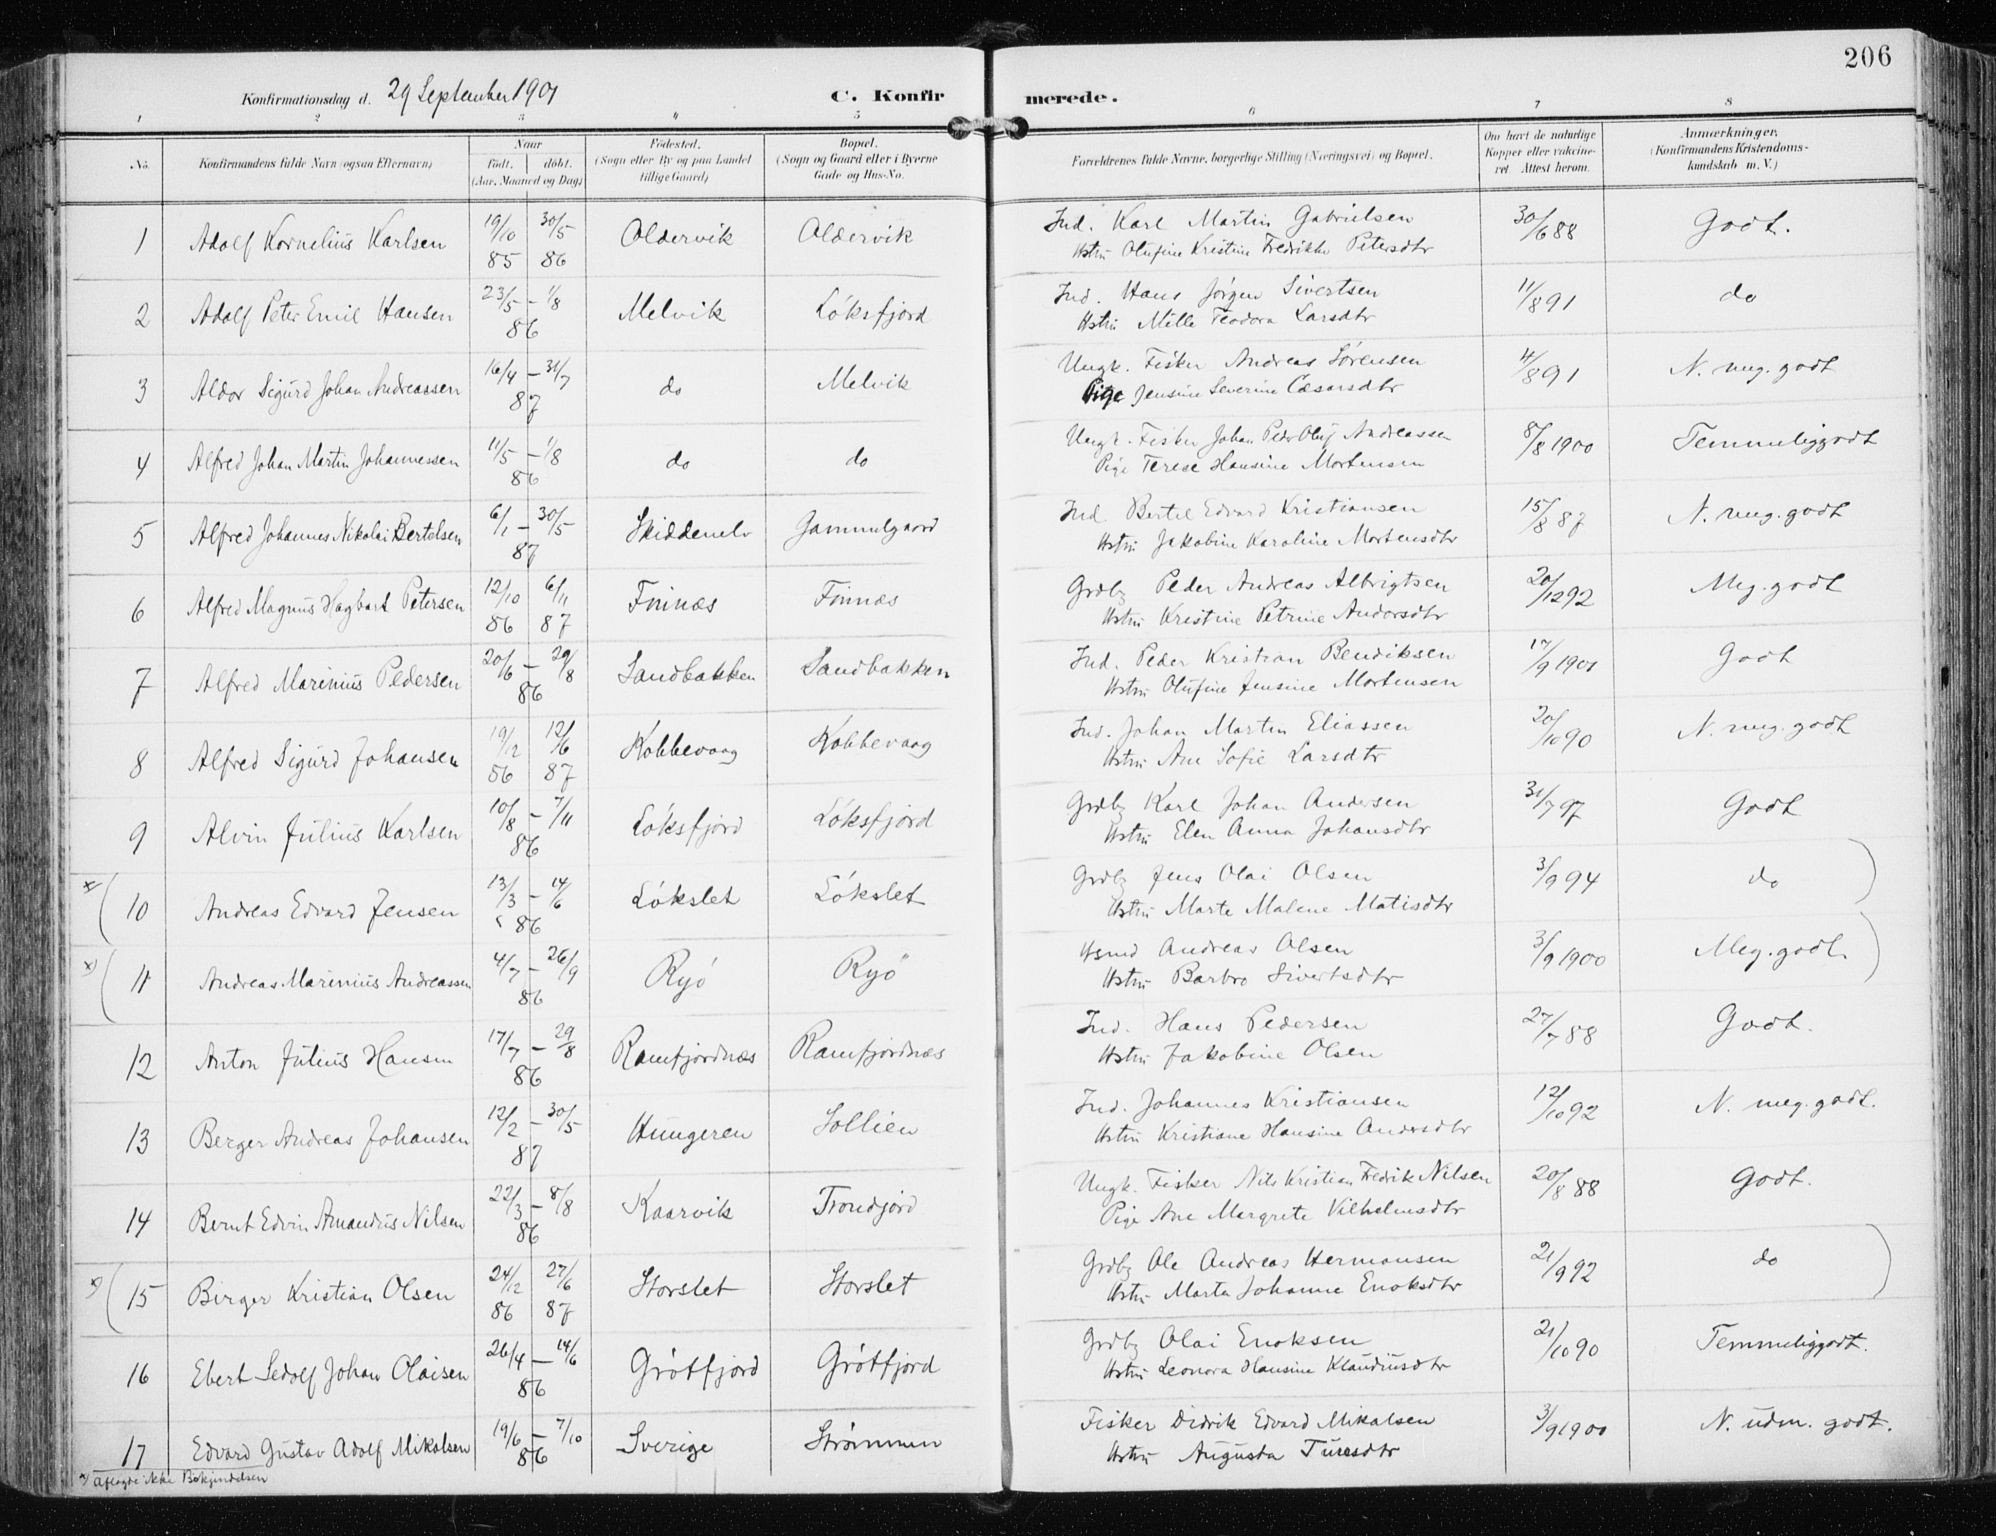 206
Konfirmationsdag d. 29 September 1901
C. Konfir merede.
1 2 3 4 5 6 7 8
No. Konfirmandens fulde Navn (ogsaa Efternavn) Naar født. døbt. (Aar, Maaned og Dag) Fødested. (Sogn eller By og paa Landet tillige Gaard) Bopæl. (Sogn og Gaard eller i Byerne Gade og Hus-No. Forældrenes fulde Navne, borgerlige Stilling (Næringsvei) og Bopæl. Om havt de naturlige Kopper eller vakcineret. Attest herom. Anmærkninger. (Konfirmandens Kristendomskundskab m. V.)
1 Adolf Kornelius Karlsen 19/10 85 30/5 86 Oldervik Oldervik Ind. Karl Martin Gabrielsen 30/6 88 Godt.
Hstru Olufine Kristine Fredrikke Petersdtr
2 Adolf Peter Emil Hansen 23/5 – 1/8 86 Melvik Løksfjord Ind. Hans Jørgen Sivertsen 11/8 91 do
Hstru Mille Teodora Larsdtr
3 Aldor Sigurd Johan Andreassen 16/4 – 31/7 87 do Melvik Ungk. Fisker Andreas Sørensen 11/8 91 N. meg. godt
Pige Jensine Severine Cæsarsdtr
4 Alfred Johan Martin Johannessen 11/5 – 1/8 86 do do Ungk. Fisker Johan Peder Oluf Andreassen 8/8 1900 Temmelig godt
Pige Terese Hansine Mortensen
5 Alfred Johannes Nikolai Bertelsen 6/1 – 30/5 87 Skiddenelv Gammelgaard Ind. Bertel Edvard Kristiansen 15/8 87 N. meg. godt
Hstru Jakobine Karoline Mortensdtr
6 Alfred Magnus Hagbart Petersen 12/10 86 6/11 87 Finnæs Finnæs Grdbg Peder Andreas Albrigtsen 20/12 92 Meg. godt
Hstru Kristine Petrine Andersdtr
7 Alfred Marinius Pedersen 20/6 – 29/8 86 Sandbakken Sandbakken Ind. Peder Kristian Bendiksen 17/9 1901 Godt
Hstru Olufine Jensine Mortensen
8 Alfred Sigurd Johansen 19/12 86 12/6 87 Kobbevaag Kobbevaag Ind. Johan Martin Eliassen 20/10 90 N. meg. godt
Hstru Ane Sofie Larsdtr
9 Alvin Julius Karlsen 10/8 – 7/11 86 Løksfjord Løksfjord Grdbg Karl Johan Andersen 31/7 97 Godt
Hstru Elen Anna Johansdtr
x) 10 Andreas Edvard Jensen 13/3 – 14/6 86 Løkslet Løkslet Grdbg Jens Olai Olsen 3/9 94 do
Hstru Marte Malene Matisdtr
x) 11 Andreas Marinius Andreassen 4/7 – 26/9 86 Ryø Ryö Hsmd Andreas Olsen 3/9 1900 Meg. godt.
Hstru Barbro Sivertsdtr
12 Anton Julius Hansen 17/7 – 29/8 86 Ramfjordnæs Ramfjordnæs Ind. Hans Pedersen 27/7 88 Godt.
Hstru Jakobine Olsen
13 Berger Andreas Johansen 12/2 – 30/5 87 Hungeren Sollien Ind. Johannes Kristiansen 12/10 92 N. meg. godt.
Hstru Kristiane Hansine Andersdtr
14 Bernt Edvin Amandus Nilsen 22/3 – 8/8 86 Kaarvik Trondjord Ungk. Fisker Nils Kristian Fredrik Nilsen 20/8 88 Godt.
Pige Ane Margrete Vilhelmsdtr
x) 15 Birger Kristian Olsen 24/12 86 27/6 87 Storslet Storslet Grdbg Ole Andreas Hermansen 21/9 92 do
Hstru Marta Johanne Enoksdtr
16 Ebert Sedolf Johan Olaisen 26/4 – 14/6 86 Grøtfjord Grøtfjord Grdbg Olai Enoksen 21/10 90 Temmelig godt.
Hstru Leonora Hansine Klaudiusdtr
17 Edvard Gustav Adolf Mikalsen 19/6 – 7/10 86 Sverige Strømmen Fisker Didrik Edvard Mikalsen 3/9 1900 N. udm. godt.
Hstru Augusta Turesdtr
x) Aflagde ikke Bekjendelsen